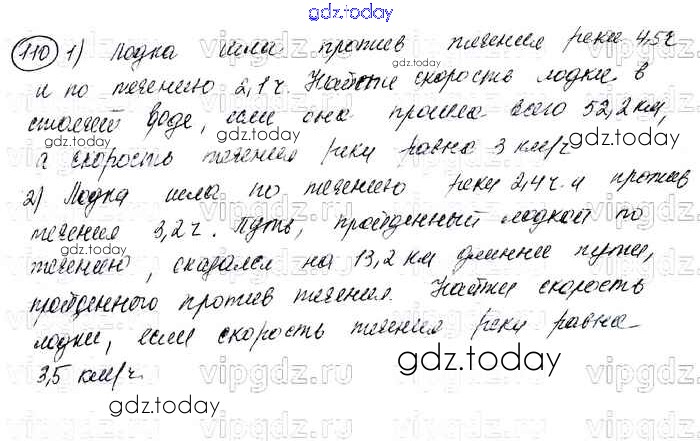 gdz.today
110 1) Лодка шла против течения реки 4,5 ч
и по течению 2,1 ч. Найти скорость лодки в
стоячей воде, если она прошла всего 52,2 км,
а скорость течения реки равна 3 км/ч
2) Лодка шла по течению реки 2,4 ч. и против
течения 3,2 ч. Путь, пройденный лодкой по
течению, оказался на 13,2 км длиннее пути,
пройденного против течения. Найти скорость
лодки, если скорость течения реки равна
3,5 км/ч.
gdz.today
gdz.today